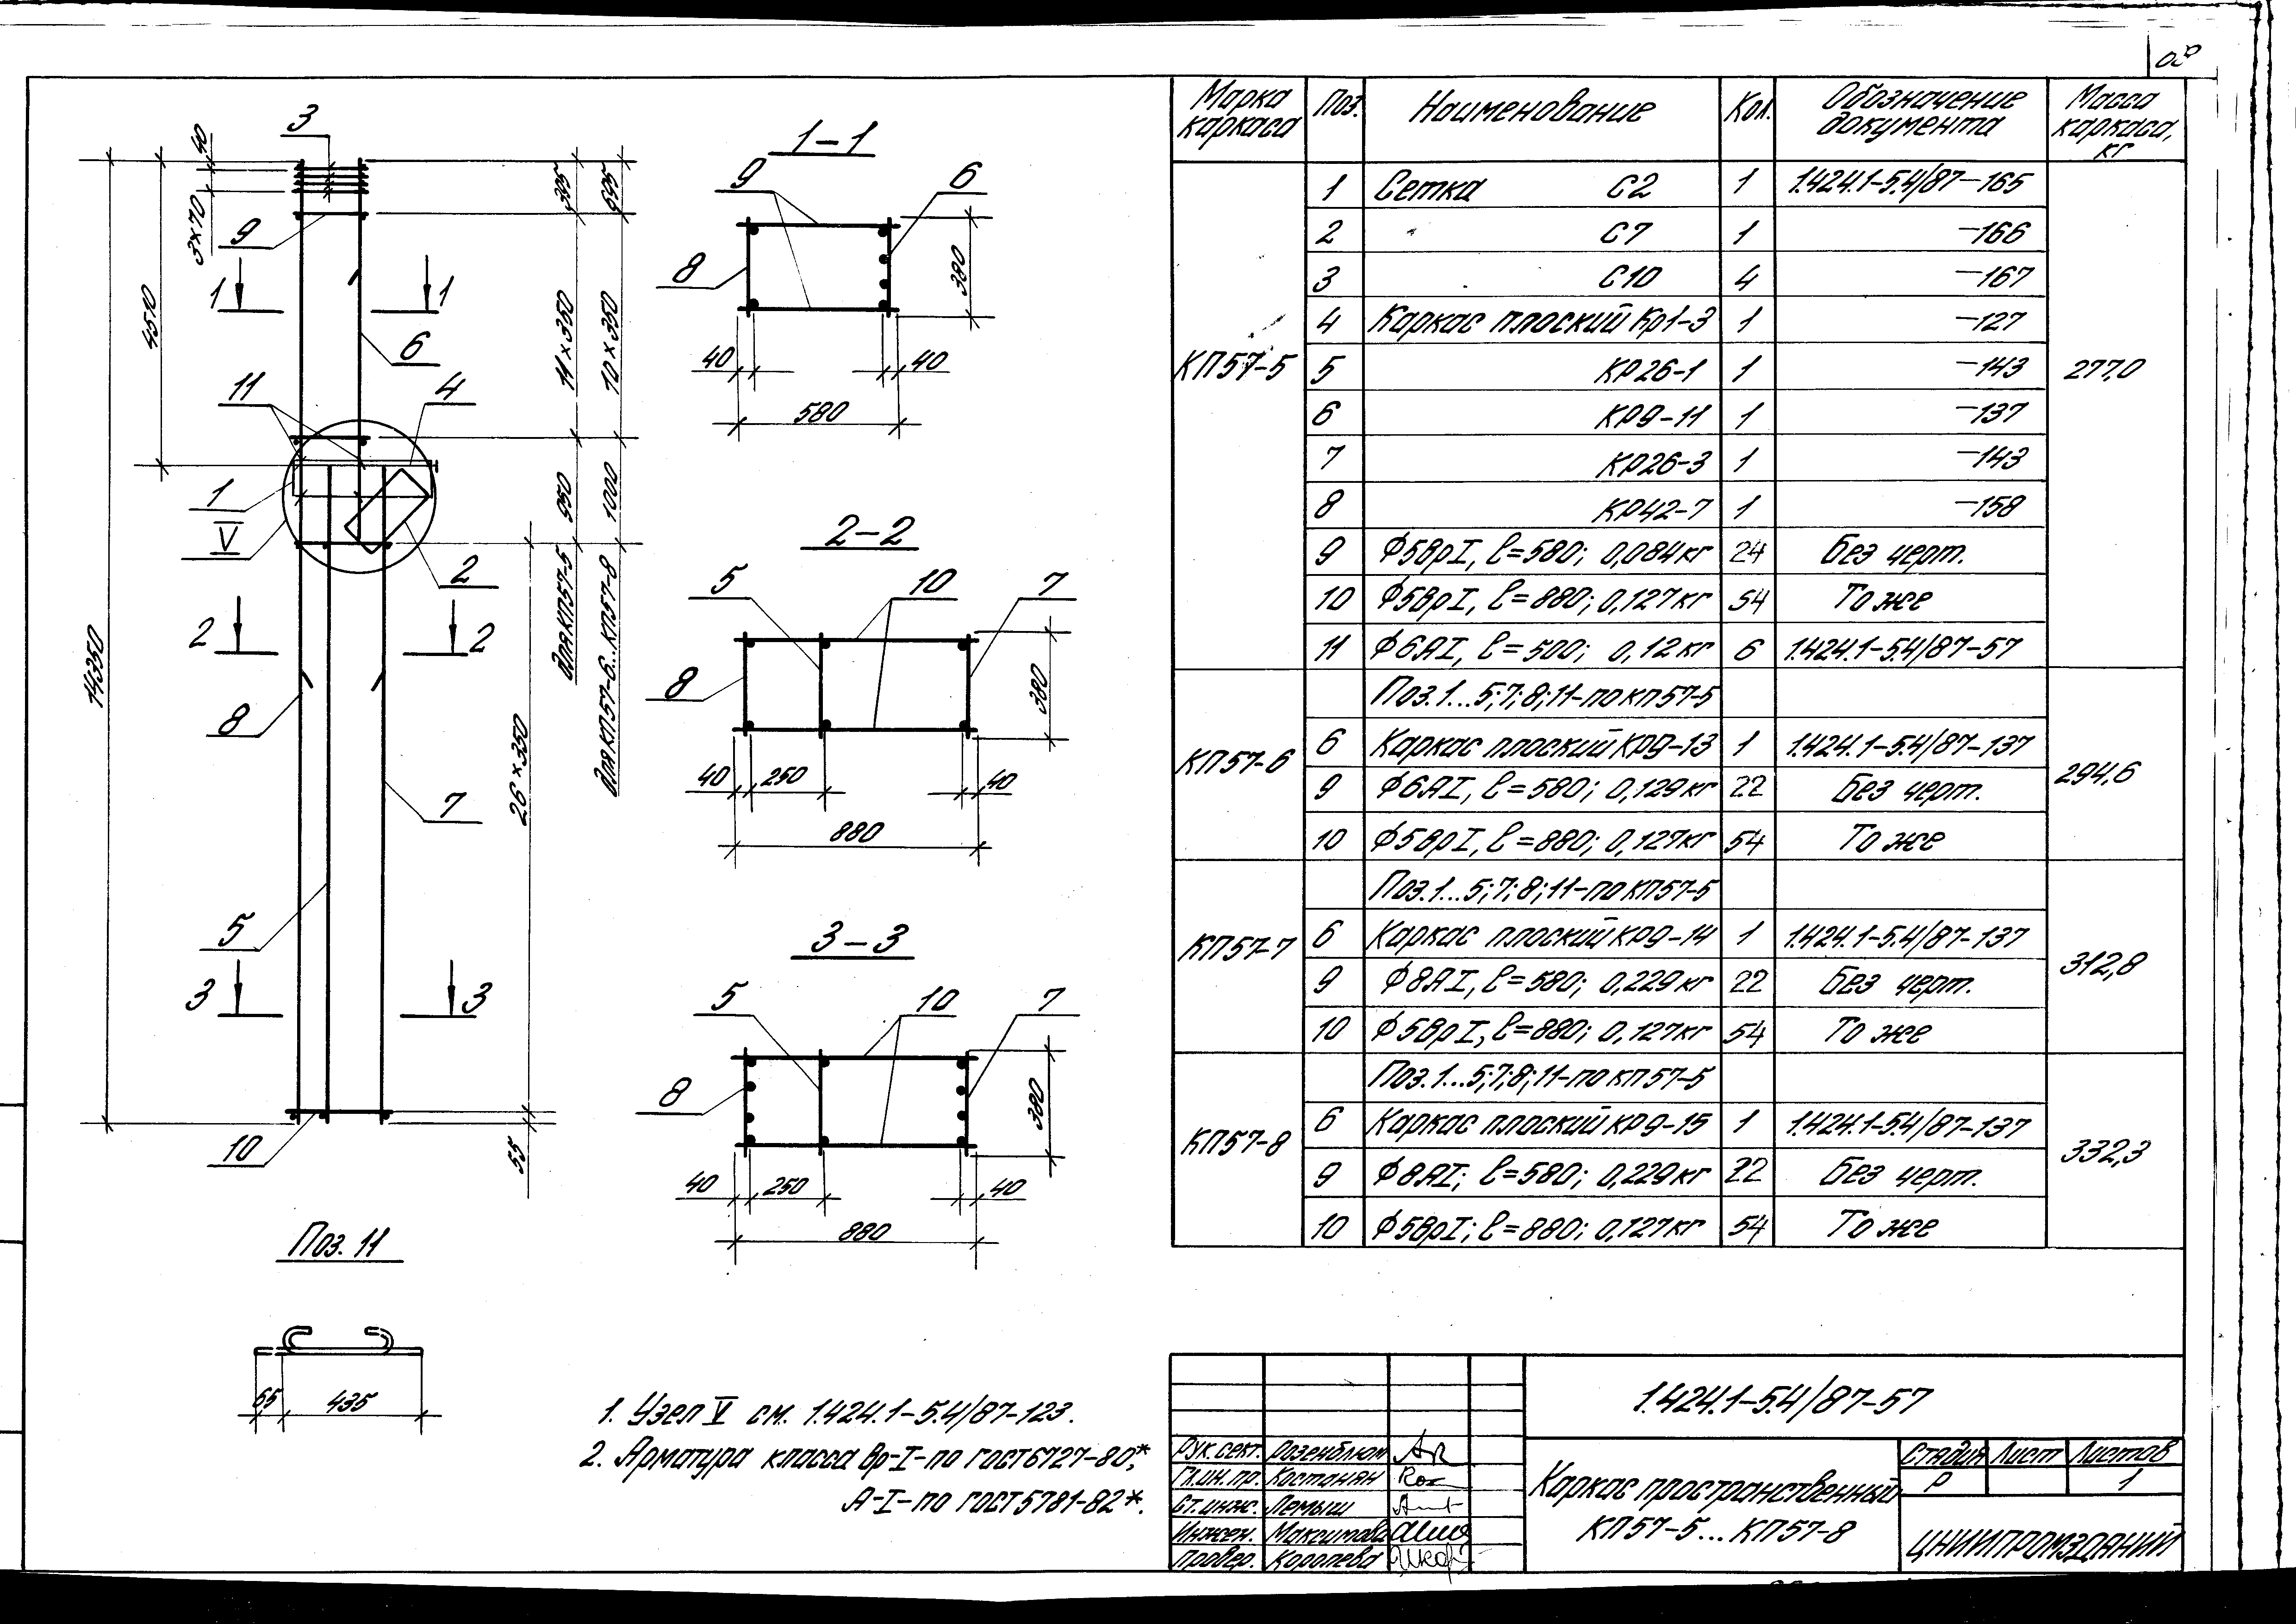 Марка каркаса | Поз. | Наименование | Кол. | Обозначение документа | Масса каркаса, кг
КП57-5 | 1 | Сетка С2 | 1 | 1.424.1-5.4/87-165 | 277,0
2 | С7 | 1 | -166
3 | С10 | 4 | -167
4 | Каркас плоский Кр1-3 | 1 | -127
5 | КР26-1 | 1 | -143
6 | КР9-11 | 1 | -137
7 | КР26-3 | 1 | -143
8 | КР42-7 | 1 | -158
9 | Ф5ВрI, ℓ=580; 0,084кг | 24 | Без черт.
10 | Ф5ВрI, ℓ=880; 0,127кг | 54 | То же
11 | Ф6АI, ℓ=500; 0,12кг | 6 | 1.424.1-5.4/87-57
КП57-6 | Поз.1...5;7;8;11-по кп57-5 | 294,6
6 | Каркас плоский КР9-13 | 1 | 1.424.1-5.4/87-137
9 | Ф6АI, ℓ=580; 0,129кг | 22 | Без черт.
10 | Ф5ВрI, ℓ=880; 0,127кг | 54 | То же
КП57-7 | Поз.1...5;7;8;11-по КП57-5 | 312,8
6 | Каркас плоский КР9-14 | 1 | 1.424.1-5.4/87-137
9 | Ф8АI, ℓ=580; 0,229кг | 22 | Без черт.
10 | Ф5ВрI, ℓ=880; 0,127кг | 54 | То же
КП57-8 | Поз.1...5;7;8;11-по КП57-5 | 332,3
6 | Каркас плоский КР9-15 | 1 | 1.424.1-5.4/87-137
9 | Ф8АI; ℓ=580; 0,229кг | 22 | Без черт.
10 | Ф5ВрI; ℓ=880; 0,127кг | 54 | То же
3
40
3×70
9
1 1
4510
6
11
4
1
V
2
2 2
14350
8
7
5
3 3
10
395
595
11×350
10×350
950
1000
для КП57-5
для КП57-6...КП57-8
26×350
55
1-1
9
6
8
380
40 40
580
2-2
5 10 7
8
380
40 250 40
880
3-3
5 10 7
8
380
40 250 40
880
Поз. 11
65 435
1. Узел V см. 1.424.1-5.4/87-123.
2. Арматура класса Вр-I-по ГОСТ 6727-80*,
А-I-по ГОСТ 5781-82*.
1.424.1-5.4/87-57
Рук.сект. Розенблюм
Гл.ин.пр. Костанян
Ст.инж. Лемыш
Инжен. Максимова
Провер. Королева
Каркас пространственный
КП57-5...КП57-8
Стадия Лист Листов
Р 1
ЦНИИПРОМЗДАНИЙ